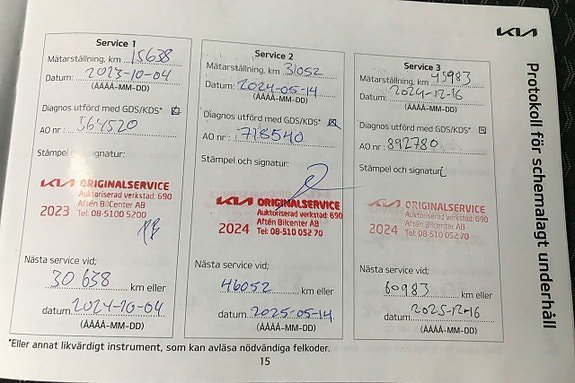 KIA
Protokoll för schemalagt underhåll
Service 1
Mätarställning, km 15638
Datum: 2023-10-04
(ÅÅÅÅ-MM-DD)
Diagnos utförd med GDS/KDS*
AO nr : 564520
Stämpel och signatur:
KIA ORIGINALSERVICE
Auktoriserad verkstad: 690
Aftén BilCenter AB
2023 Tel: 08-5100 5200
Nästa service vid;
30638 km eller
datum 2024-10-04
(ÅÅÅÅ-MM-DD)
Service 2
Mätarställning, km 31052
Datum: 2024-05-14
(ÅÅÅÅ-MM-DD)
Diagnos utförd med GDS/KDS*
AO nr : 718540
Stämpel och signatur:
KIA ORIGINALSERVICE
Auktoriserad verkstad: 690
Aftén BilCenter AB
2024 Tel: 08-510 052 70
Nästa service vid;
46052 km eller
datum 2025-05-14
(ÅÅÅÅ-MM-DD)
Service 3
Mätarställning, km 45983
Datum: 2024-12-16
(ÅÅÅÅ-MM-DD)
Diagnos utförd med GDS/KDS*
AO nr : 892780
Stämpel och signatur:
KIA ORIGINALSERVICE
Auktoriserad verkstad: 690
Aftén BilCenter AB
2024 Tel: 08-510 052 70
Nästa service vid;
60983 km eller
datum 2025-12-16
(ÅÅÅÅ-MM-DD)
*Eller annat likvärdigt instrument, som kan avläsa nödvändiga felkoder.
15